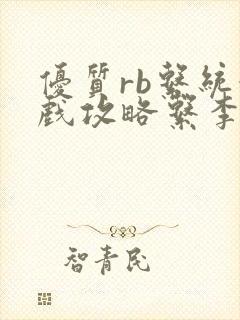 優質rb繫統
戲攻略繫李
智青民